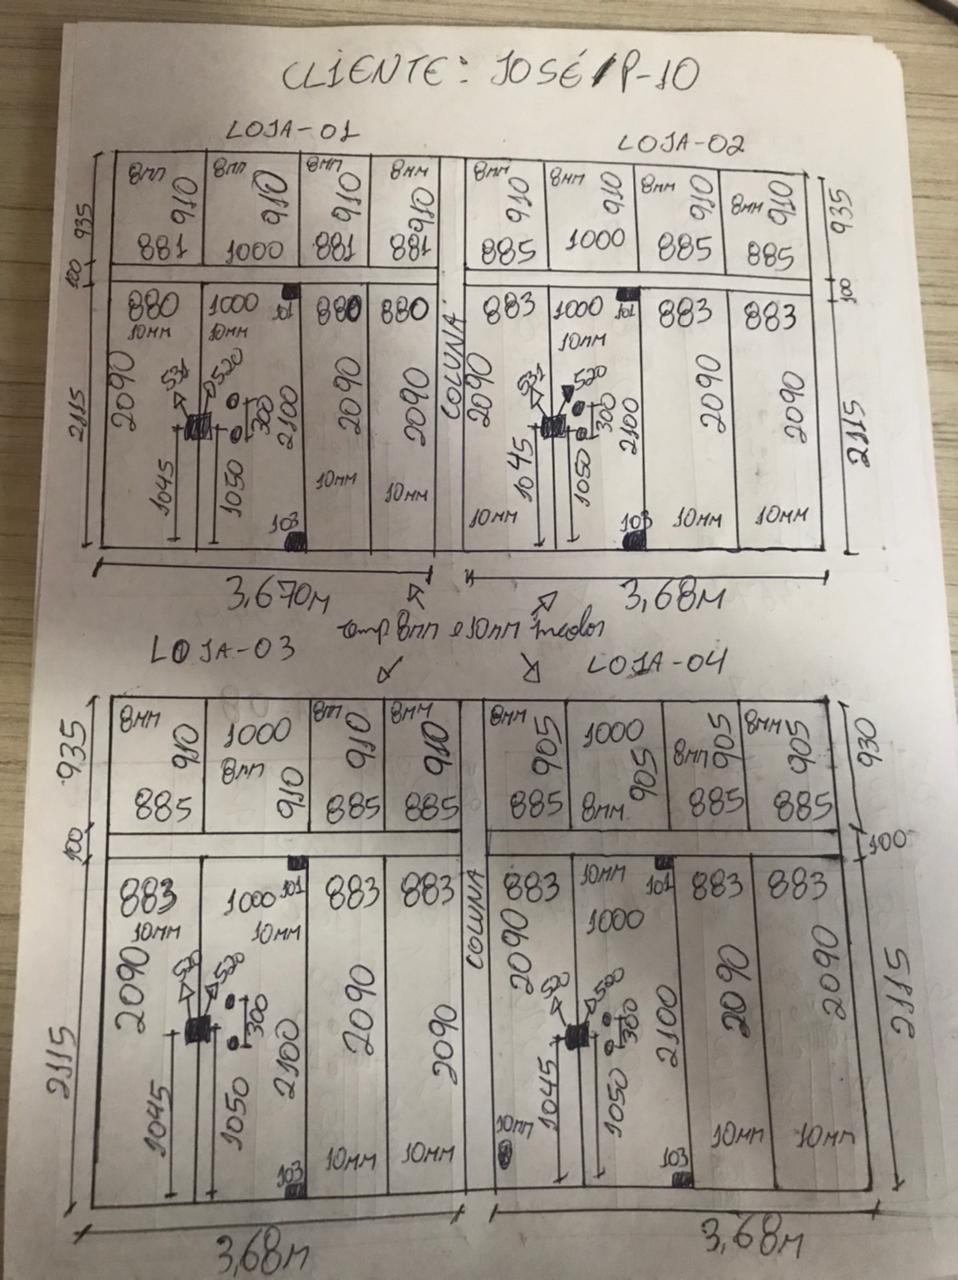 CLIENTE: JOSÉ/P-10
LOJA-01
8mm 910 881
8mm 910 1000
8mm 910 881
8mm 910 881
935
100
2115
880 10mm 2090
1000 10mm 101
531 520
300
2100
1045
1050
103
880 2090 10mm
880 2090 10mm
3,670m
COLUNA
LOJA-02
8mm 910 885
8mm 910 1000
8mm 910 885
8mm 910 885
935
100
2115
883 2090 10mm
1000 101 10mm
531 520
300
2100
1045
1050
103
883 2090 10mm
883 2090 10mm
3,68m
temp 8mm e 10mm incolor
LOJA-03
8mm 910 885
1000 8mm 910
8mm 910 885
8mm 910 885
935
100
2115
883 10mm 2090
1000 101 10mm
520 520
300
2100
1045
1050
103
883 2090 10mm
883 2090 10mm
3,68m
COLUNA
LOJA-04
8mm 905 885
1000 905 8mm
8mm 905 885
8mm 905 885
930
100
2115
883 2090 10mm
10mm 101 1000
520 520
300
2100
1045
1050
103
883 2090 10mm
883 2090 10mm
3,68m